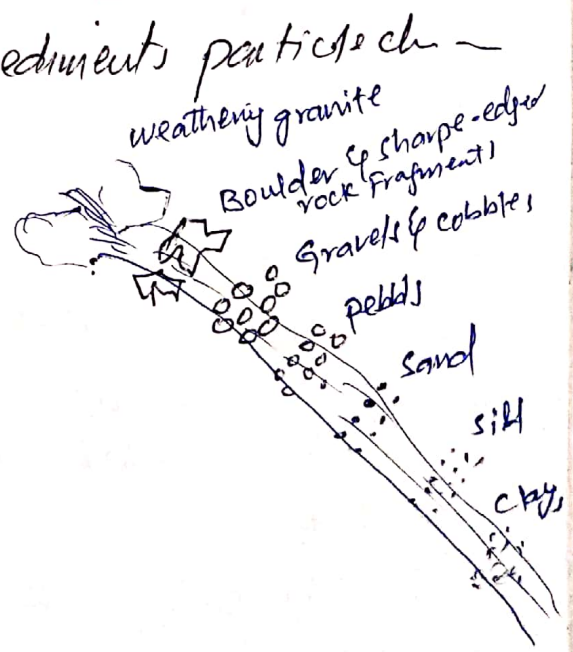 ediments particle ch
weathering granite
Boulder & sharpe-edged
rock Fragments
Gravels & cobbles
pebbls
Sand
silt
clay,